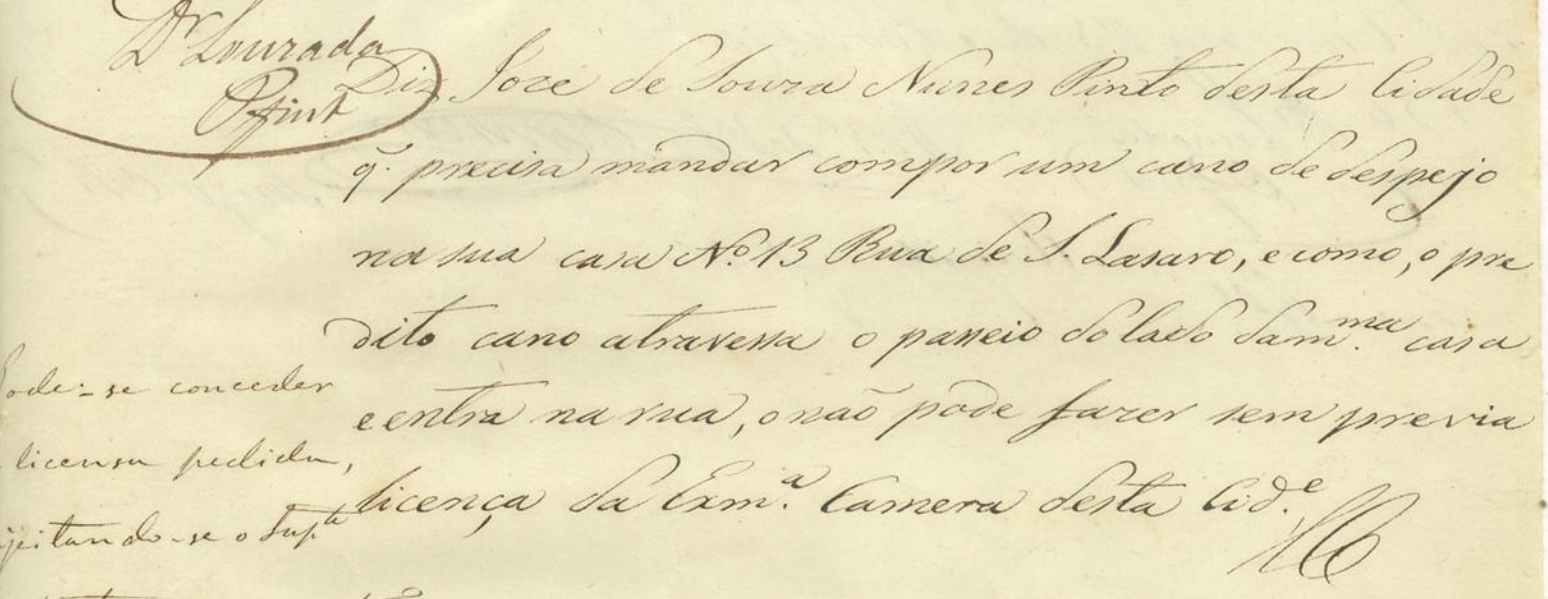 Dr Lourada
Diz Joze de Souza Nunes Pinto desta Cidade
q. precisa mandar compor um cano de despejo
na sua casa No. 13 Rua de S. Lasaro, e como, o pre
dito cano atravessa o passeio do lado da m.ma casa
e entra na rua, o não pode fazer sem previa
licença da Exm.a Camera desta Cid.e
ode-se conceder
licensa pedida,
jeitando-se o Sup.te